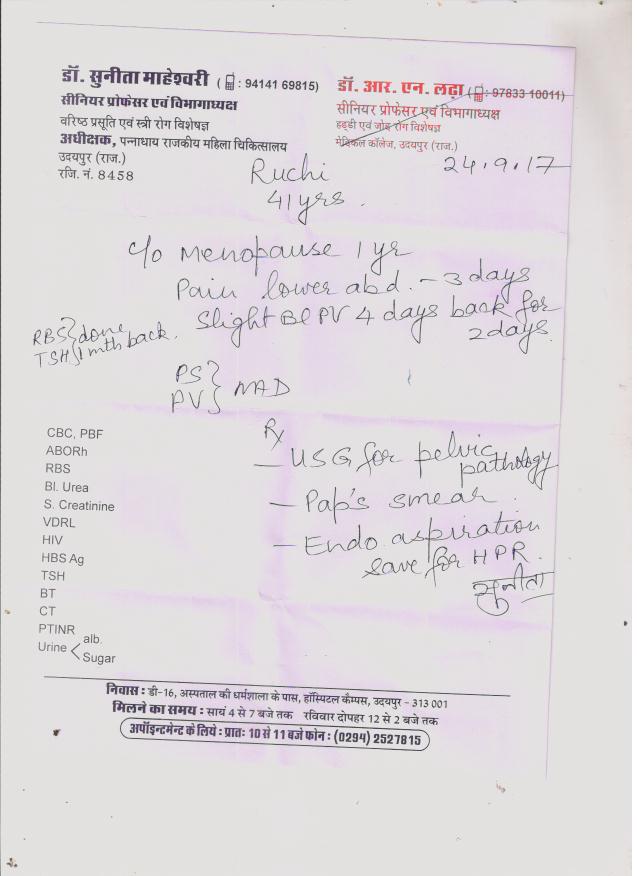 डॉ. सुनीता माहेश्वरी ( : 94141 69815)
सीनियर प्रोफेसर एवं विभागाध्यक्ष
वरिष्ठ प्रसूति एवं स्त्री रोग विशेषज्ञ
अधीक्षक, पन्नाधाय राजकीय महिला चिकित्सालय
उदयपुर (राज.)
रजि. नं. 8458
डॉ. आर. एन. लढ़ा ( : 97833 10011)
सीनियर प्रोफेसर एवं विभागाध्यक्ष
हड्डी एवं जोड़ रोग विशेषज्ञ
मेडिकल कॉलेज, उदयपुर (राज.)
24.9.17
Ruchi
41 yrs.
c/o Menopause 1 yr
Pain lower abd. - 3 days
Slight Bl PV 4 days back for
2 days
RBS } done
TSH } 1 mth back.
PS }
PV } NAD
CBC, PBF
ABORh
RBS
Bl. Urea
S. Creatinine
VDRL
HIV
HBS Ag
TSH
BT
CT
PTINR
Urine < alb.
Sugar
Rx
— USG for pelvic
pathology
— Pap's smear.
— Endo aspiration
save for HPR.
सुनीता
निवास : डी-16, अस्पताल की धर्मशाला के पास, हॉस्पिटल कैम्पस, उदयपुर - 313 001
मिलने का समय : सायं 4 से 7 बजे तक रविवार दोपहर 12 से 2 बजे तक
अपॉइन्टमेन्ट के लिये : प्रातः 10 से 11 बजे फोन : (0294) 2527815